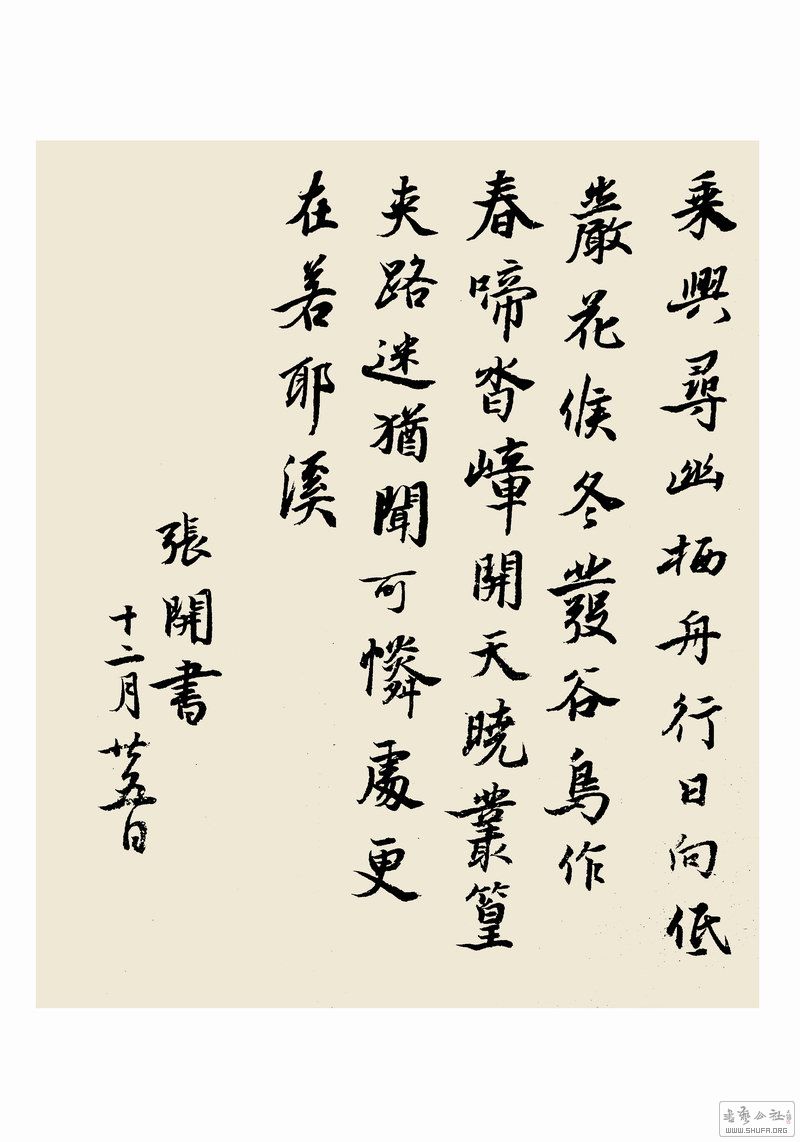 乘興尋幽栖舟行日向低
巖花候冬發谷鳥作
春啼沓嶂開天曉叢篁
夾路迷猶聞可憐處更
在若耶溪
張開書
十二月廿五日
書藝公社
WWW.SHUFA.ORG